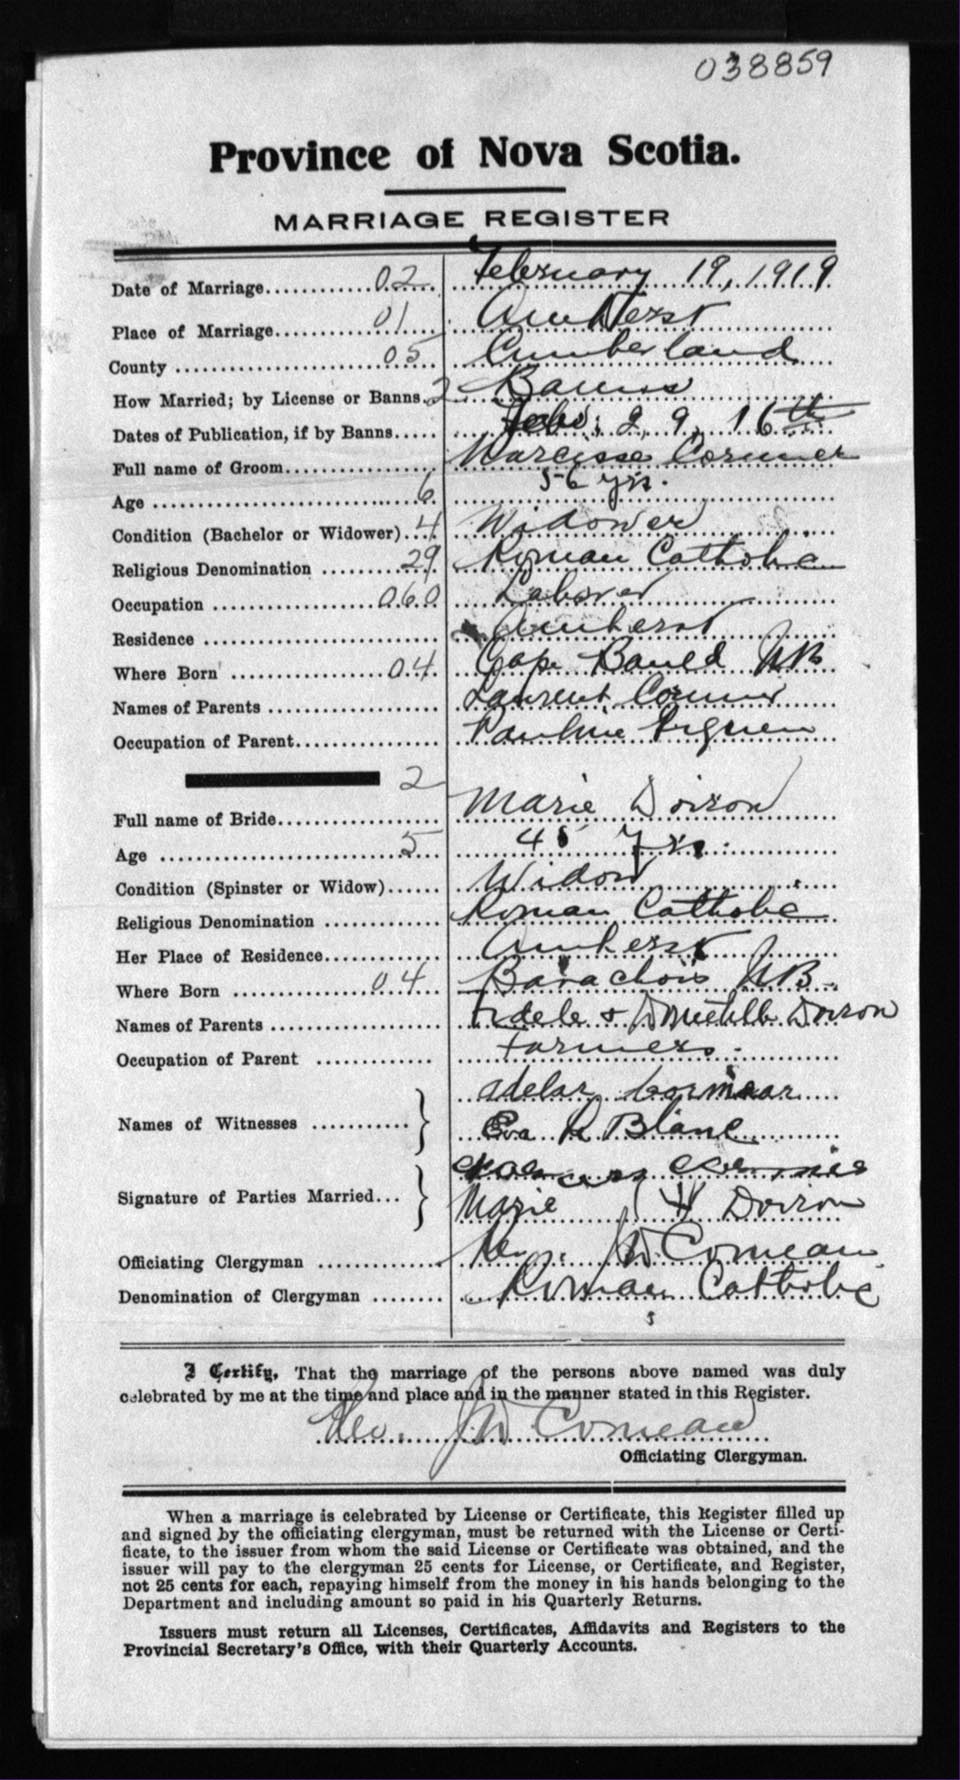 038859
Province of Nova Scotia.
MARRIAGE REGISTER
Date of Marriage 02 February 19, 1919
Place of Marriage 01 Amherst
County 05 Cumberland
How Married; by License or Banns. 2 Banns
Dates of Publication, if by Banns Feb. 2, 9, 16th
Full name of Groom Narcisse Cormier
Age 6 56 yrs.
Condition (Bachelor or Widower) 4 Widower
Religious Denomination 29 Roman Catholic
Occupation 060 Laborer
Residence Amherst
Where Born 04 Cape Bauld NB
Names of Parents Laurent Cormier
Occupation of Parent Pauline
2
Full name of Bride Marie Doiron
Age 5 45 yrs.
Condition (Spinster or Widow) Widow
Religious Denomination Roman Catholic
Her Place of Residence Amherst
Where Born 04 Barachois NB.
Names of Parents Fidele & Doiron
Occupation of Parent Farmers.
Names of Witnesses Adelar
Eva L Blanc
Signature of Parties Married
Marie Doiron
Officiating Clergyman JW Comeau
Denomination of Clergyman Roman Catholic
s
I Certify, That the marriage of the persons above named was duly
celebrated by me at the time and place and in the manner stated in this Register.
JW Comeau
Officiating Clergyman.
When a marriage is celebrated by License or Certificate, this Register filled up
and signed by the officiating clergyman, must be returned with the License or Certi-
ficate, to the issuer from whom the said License or Certificate was obtained, and the
issuer will pay to the clergyman 25 cents for License, or Certificate, and Register,
not 25 cents for each, repaying himself from the money in his hands belonging to the
Department and including amount so paid in his Quarterly Returns.
Issuers must return all Licenses, Certificates, Affidavits and Registers to the
Provincial Secretary's Office, with their Quarterly Accounts.